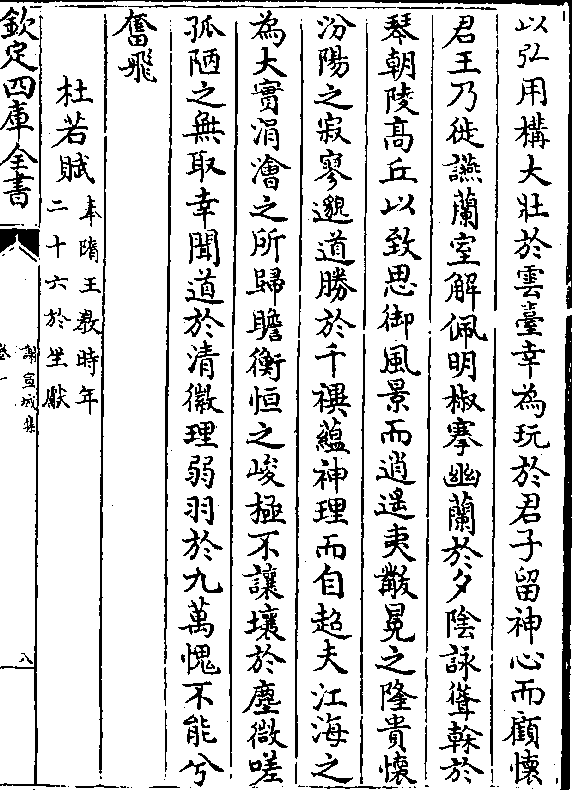 以弘用構大壯於雲臺幸為玩於君子留神心而顧懷
君王乃徙讌蘭室解佩明椒搴幽蘭於夕陰詠聳榦於
琴朝陵高丘以致思御風景而逍遙夷黻冕之隆貴懷
汾陽之寂寥邈道勝於千禩蘊神理而自超夫江海之
為大實涓澮之所歸瞻衡恒之峻極不讓壤於塵微嗟
孤陋之無取幸聞道於清徽理弱羽於九萬愧不能兮
奮飛
杜若賦
奉隋王教時年
二十六於坐獻
欽定四庫全書
謝宣城集
卷一
八